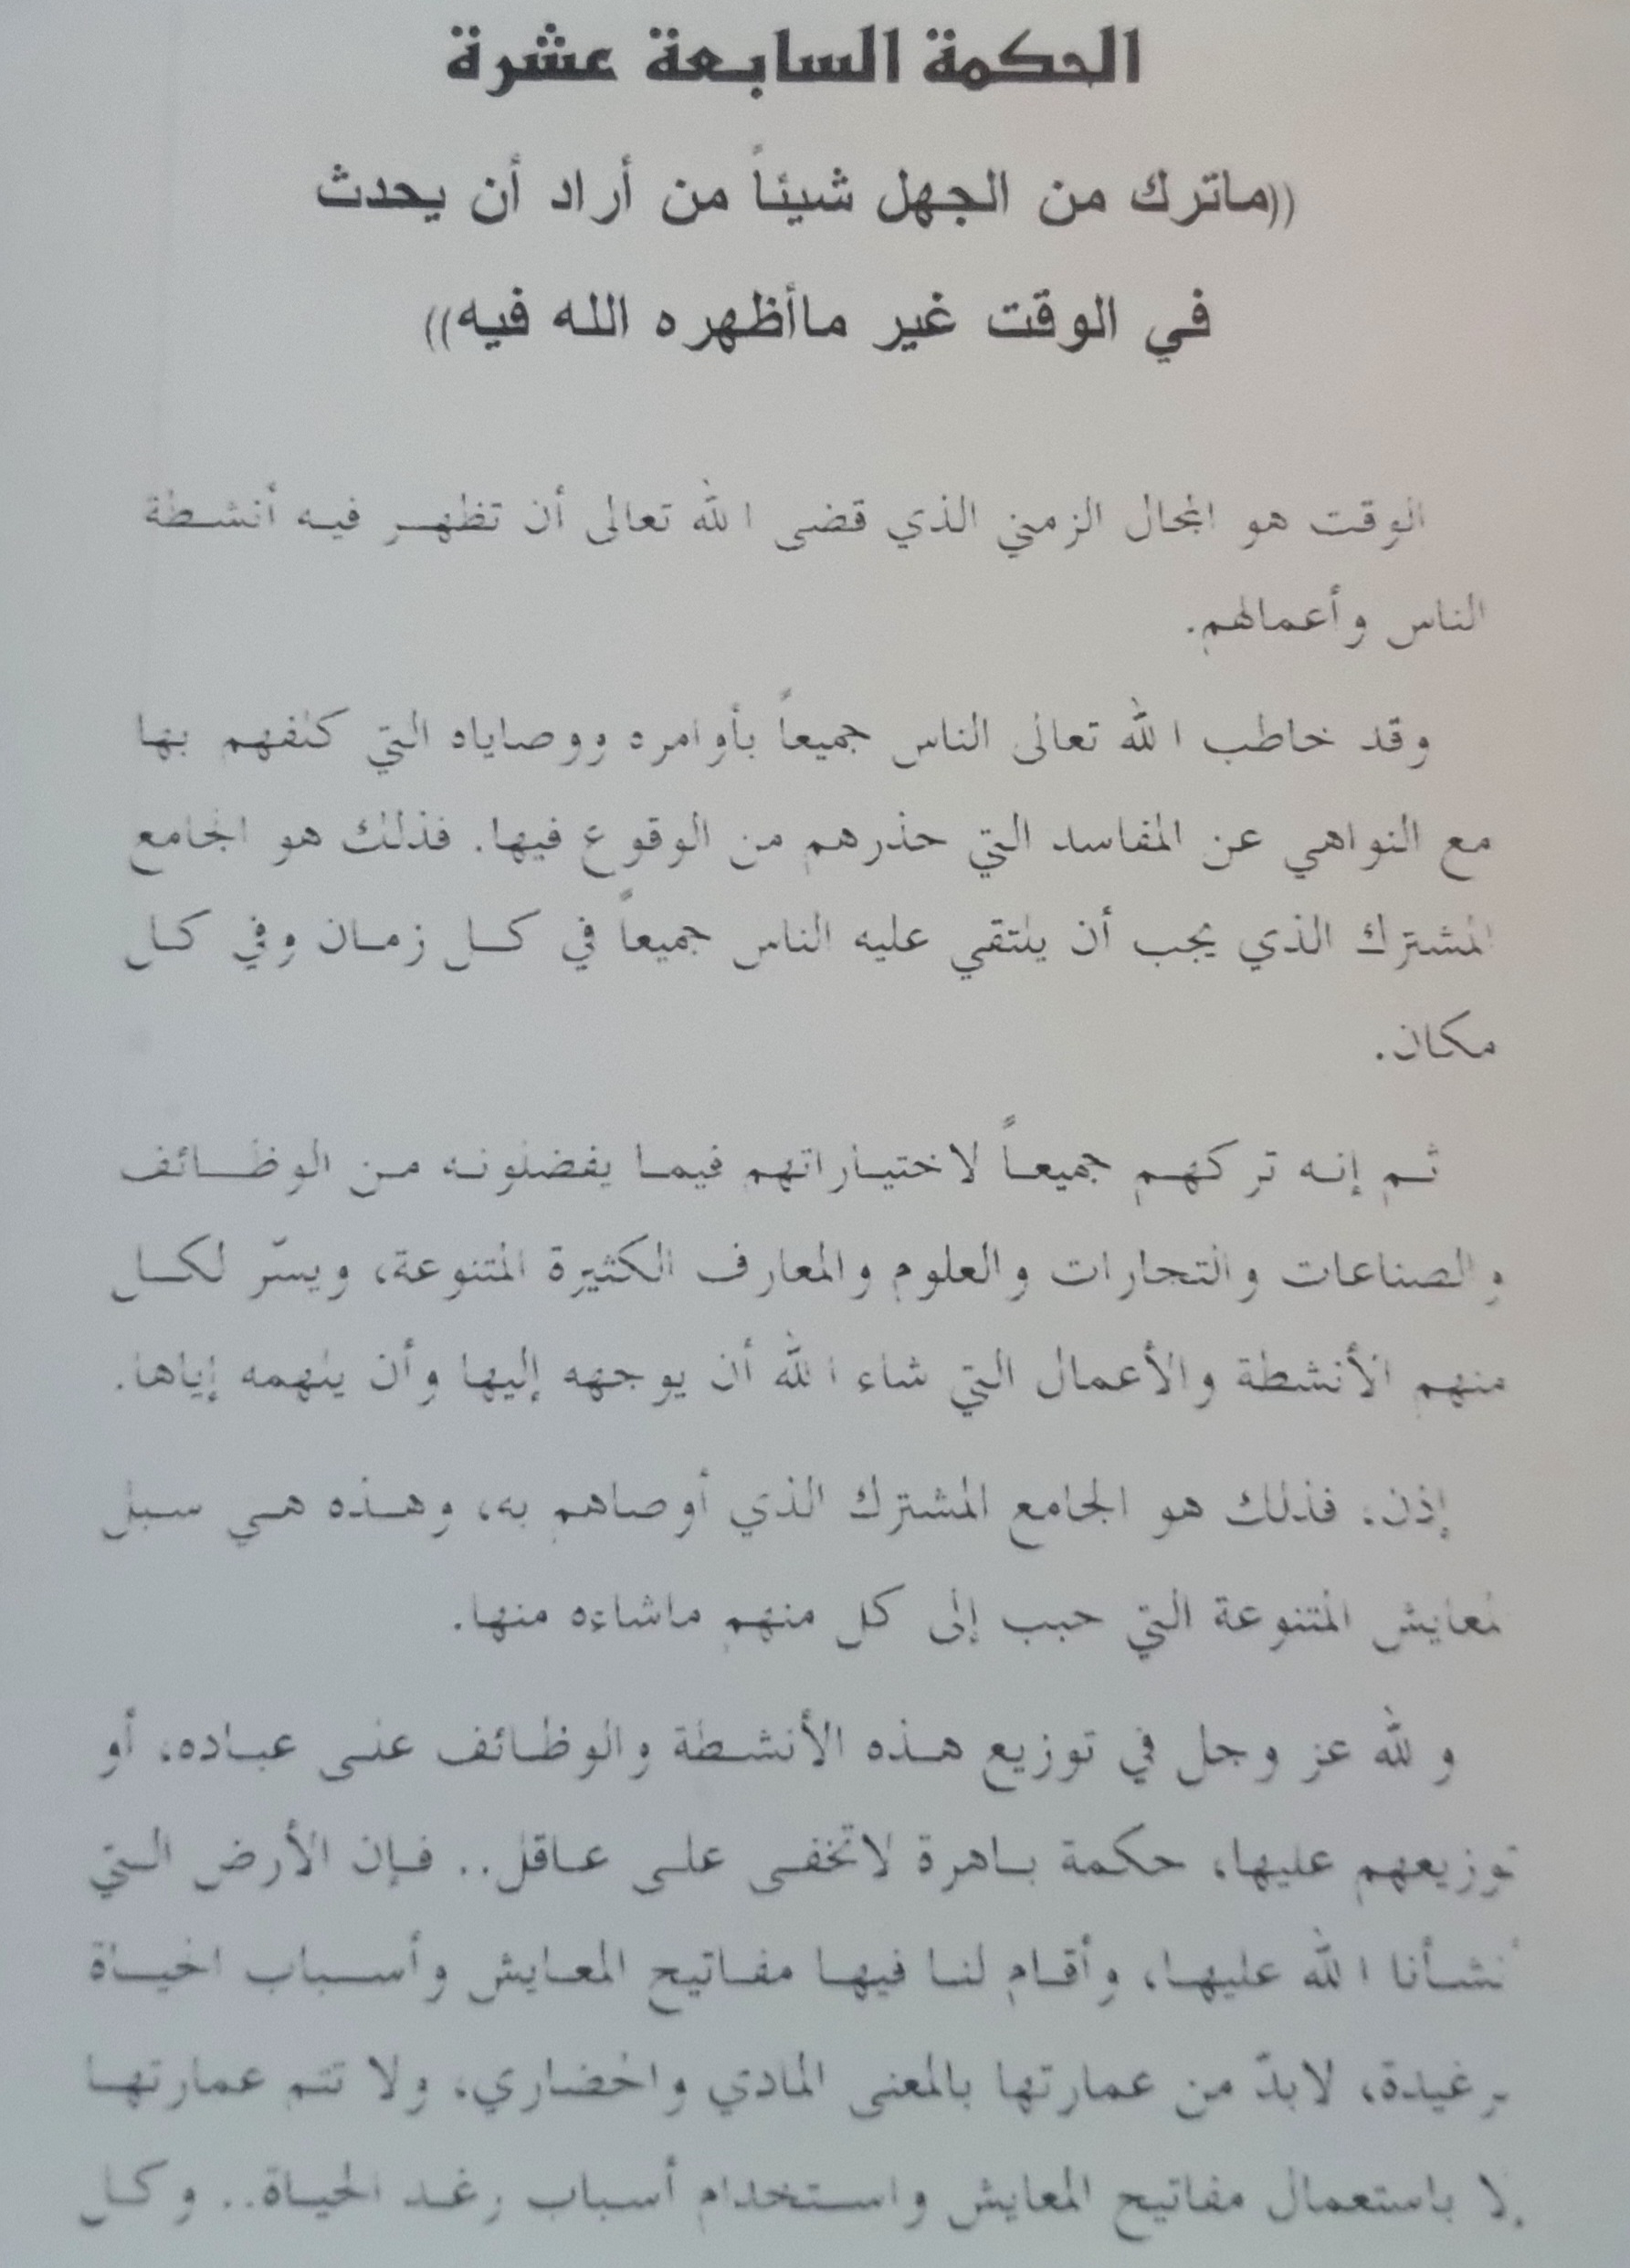 الحكمة السابعة عشرة
((ماترك من الجهل شيئاً من أراد أن يحدث
في الوقت غير ماأظهره الله فيه))
الوقت هو المجال الزمني الذي قضى الله تعالى أن تظهر فيه أنشطة
الناس وأعمالهم.
وقد خاطب الله تعالى الناس جميعاً بأوامره ووصاياه التي كلفهم بها
مع النواهي عن المفاسد التي حذرهم من الوقوع فيها. فذلك هو الجامع
المشترك الذي يجب أن يلتقي عليه الناس جميعاً في كل زمان وفي كل
مكان.
ثم إنه تركهم جميعاً لاختياراتهم فيما يفضلونه من الوظائف
والصناعات والتجارات والعلوم والمعارف الكثيرة المتنوعة، ويسّر لكل
منهم الأنشطة والأعمال التي شاء الله أن يوجهه إليها وأن يلهمه إياها.
إذن، فذلك هو الجامع المشترك الذي أوصاهم به، وهذه هي سبل
المعايش المتنوعة التي حبب إلى كل منهم ماشاءه منها.
ولله عز وجل في توزيع هذه الأنشطة والوظائف على عباده، أو
توزيعهم عليها، حكمة باهرة لاتخفى على عاقل.. فإن الأرض التي
أنشأنا الله عليها، وأقام لنا فيها مفاتيح المعايش وأسباب الحياة
الرغيدة، لابدّ من عمارتها بالمعنى المادي والحضاري، ولا تتم عمارتها
إلا باستعمال مفاتيح المعايش واستخدام أسباب رغد الحياة.. وكل